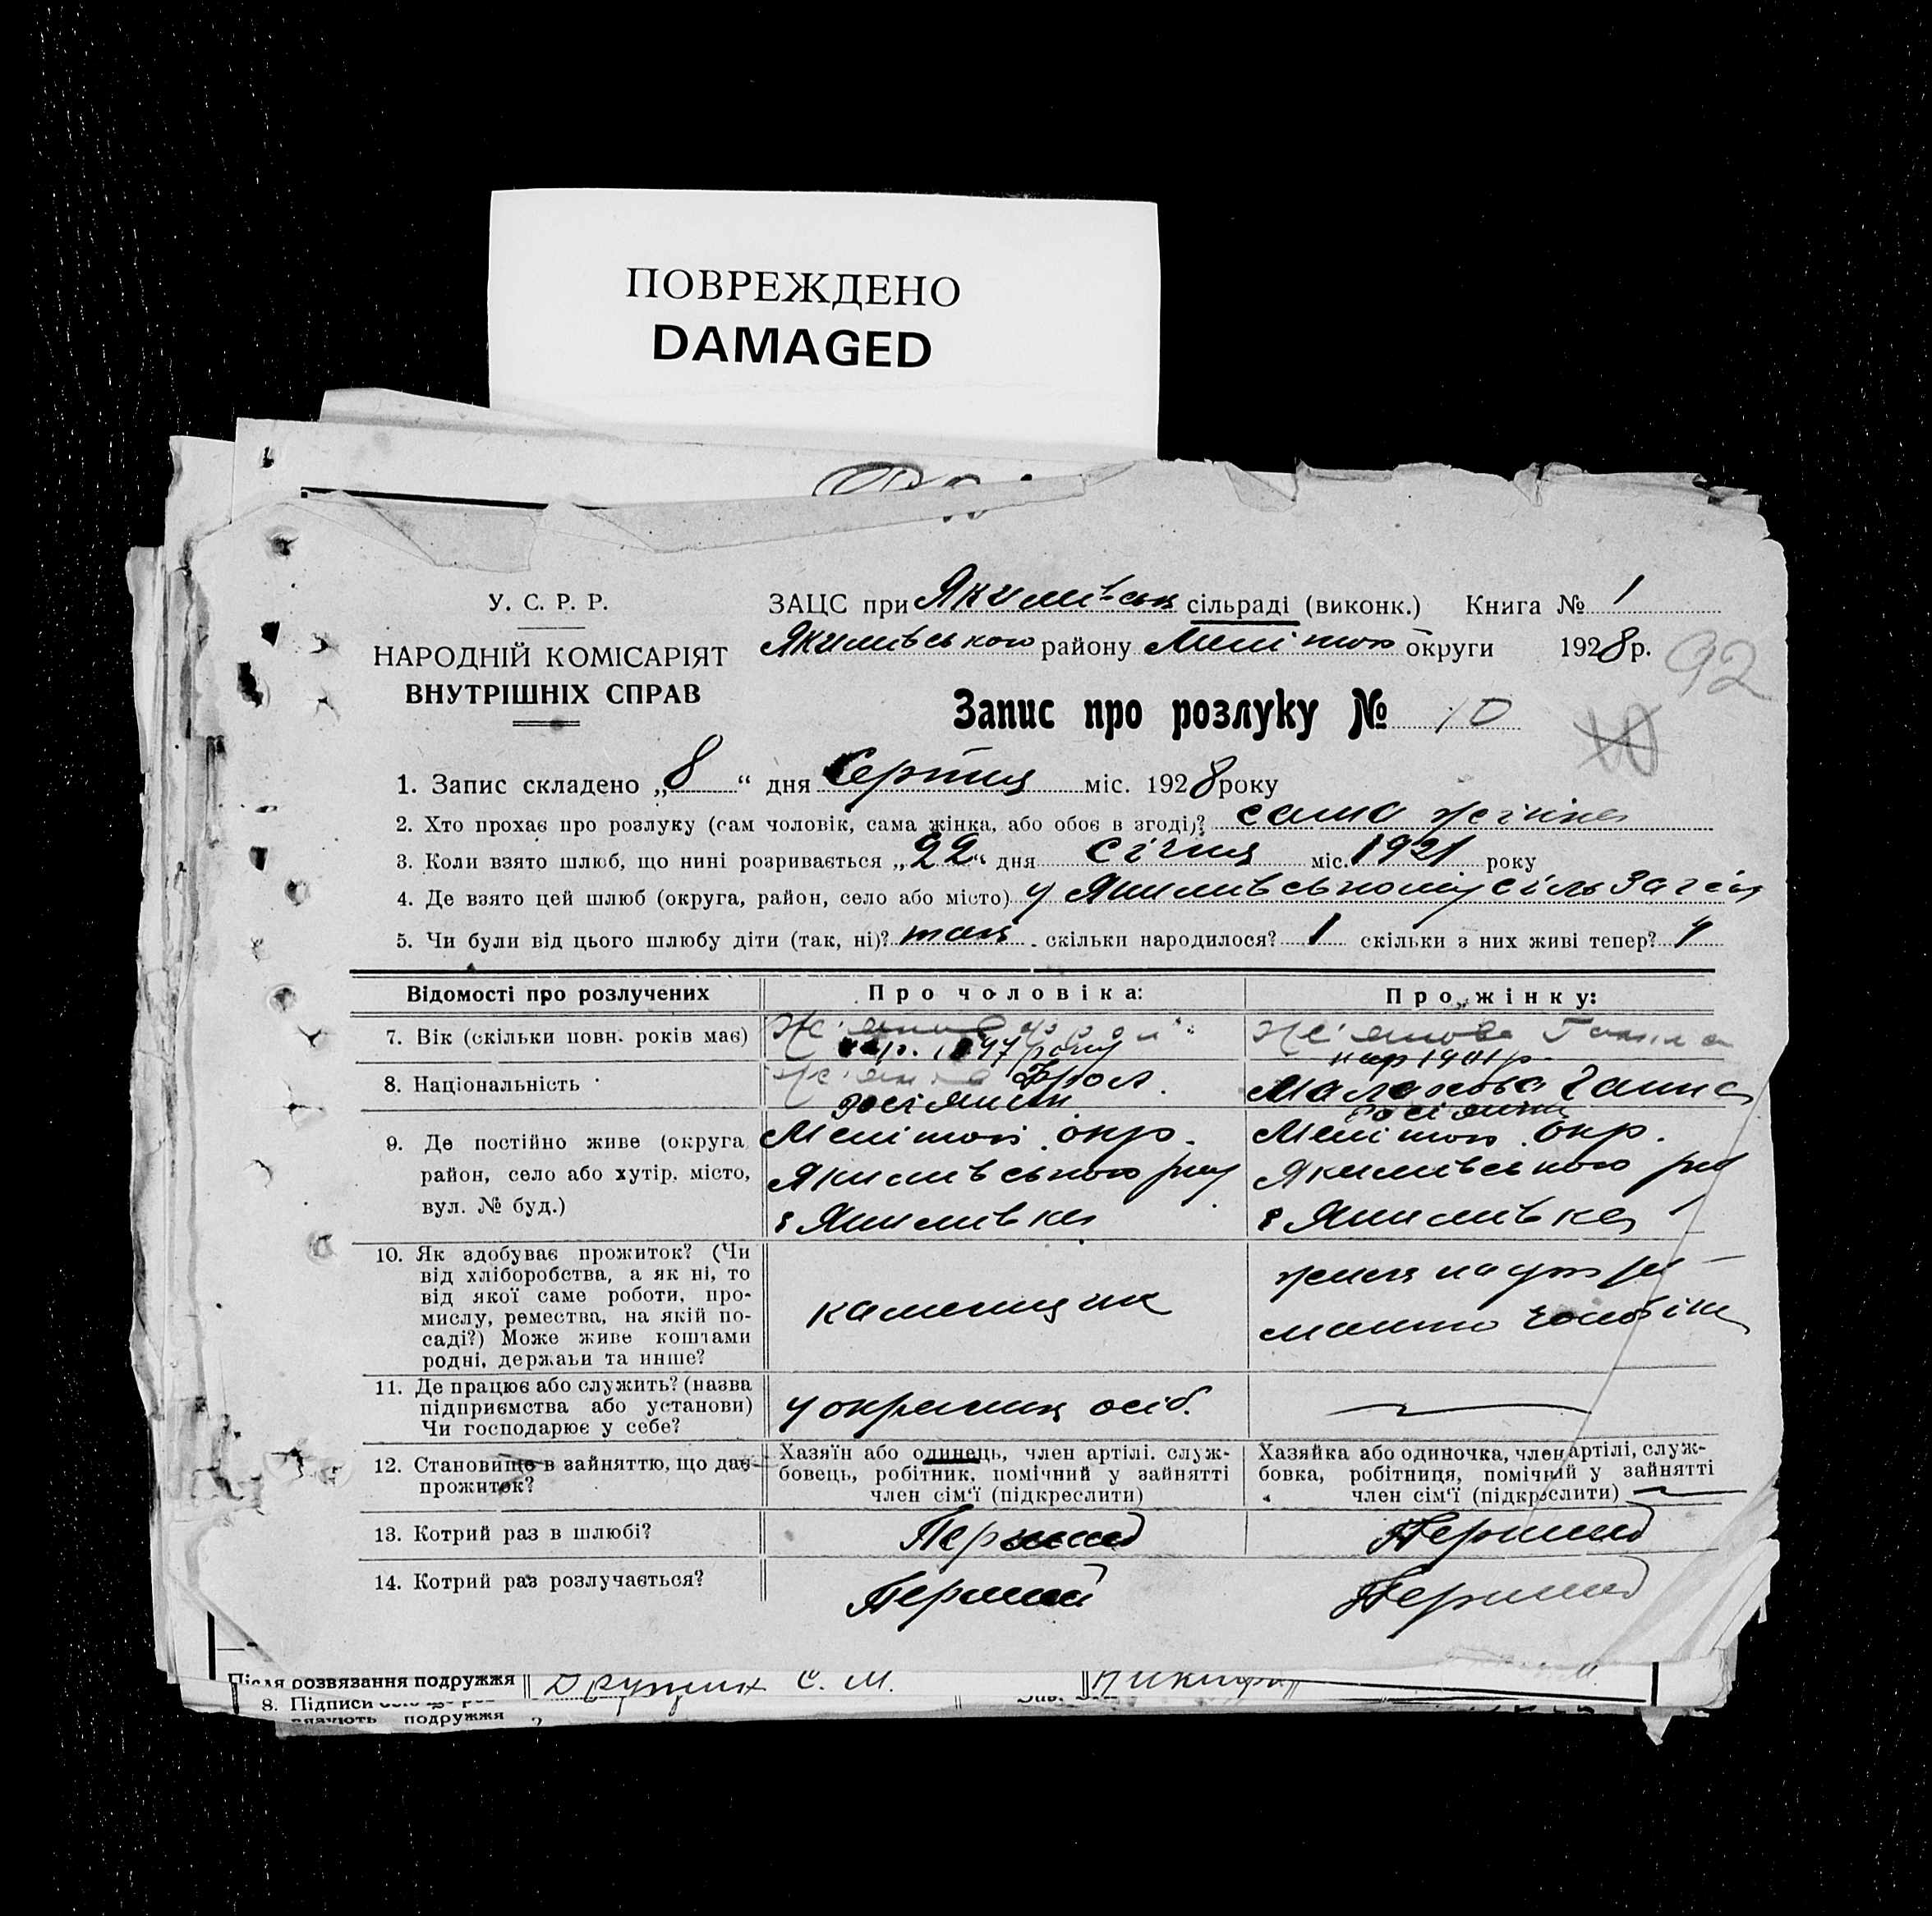 ПОВРЕЖДЕНО
DAMAGED
У. С. Р. Р.
НАРОДНІЙ КОМІСАРІЯТ
ВНУТРІШНІХ СПРАВ
ЗАЦС при Якимівськ сільраді (виконк.) Книга № 1
Якимівського району округи 1928 р.
92
Запис про розлуку № 10
1. Запис складено „8“ дня Серпня міс. 1928 року
2. Хто прохає про розлуку (сам чоловік, сама жінка, або обоє в згоді)? сама жінка
3. Коли взято шлюб, що нині розривається „22“ дня січня міс. 1921 року
4. Де взято цей шлюб (округа, район, село або місто) у Якимівському
5. Чи були від цього шлюбу діти (так, ні)? так скільки народилося? 1 скільки з них живі тепер?
Відомості про розлучених Про чоловіка: Про жінку:
7. Вік (скільки повн. років має) нар. 1897 року нар 1901 р.
8. Національність Фрол. Ганна
росіянин росіянка
9. Де постійно живе (округа район, село або хутір, місто, вул. № буд.)
окр. окр.
Якимівського р-ну Якимівського р-ну
Якимівка Якимівка
10. Як здобуває прожиток? (Чи
від хліборобства, а як ні, то
від якої саме роботи, про-
мислу, ремества, на якій по-
саді?) Може живе коштами
родні, держави та инше?
каменщик
11. Де працює або служить? (назва
підприємства або установи)
Чи господарює у себе?
у окремих осіб.
12. Становище в зайняттю, що дає
прожиток?
Хазяїн або одинець, член артілі, служ-
бовець, робітник, помічний у зайнятті
член сім'ї (підкреслити)
Хазяйка або одиночка, член артілі, служ-
бовка, робітниця, помічний у зайнятті
член сім'ї (підкреслити)
13. Котрий раз в шлюбі? Перший Перший
14. Котрий раз розлучається? Перший Перший
Після розвязання подружжя С. М.
8. Підписи
подружжя